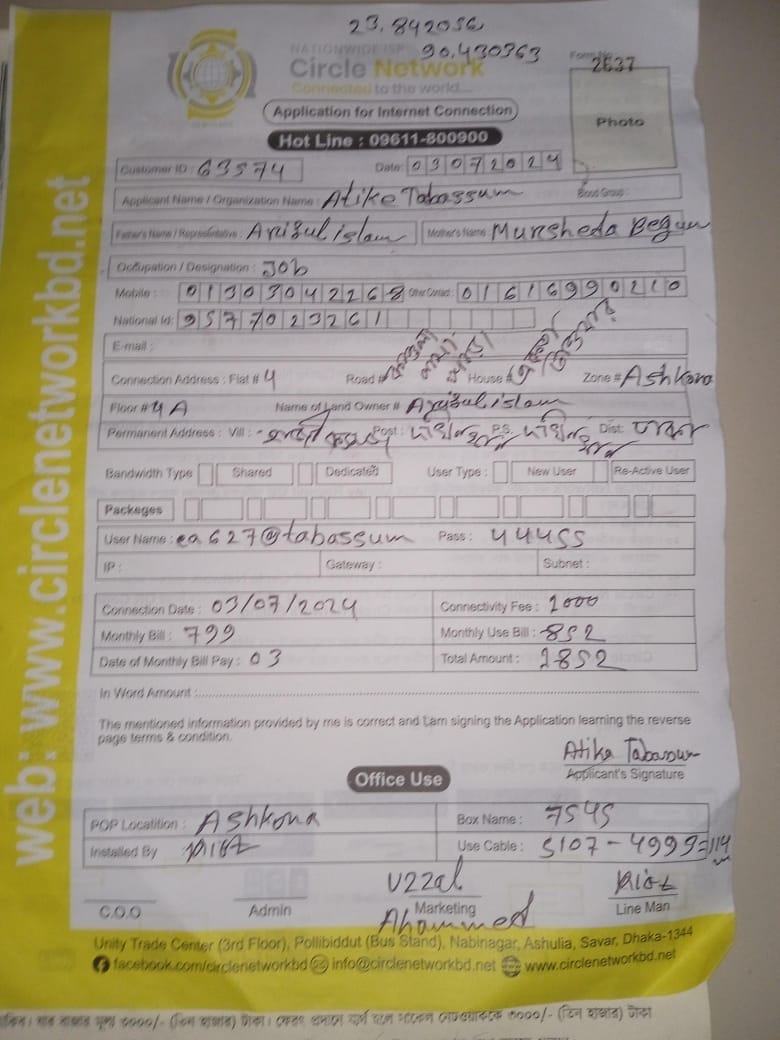 23.842056
90.430363
NATIONWIDE ISP
Circle Network
Connected to the world...
Form No
2637
Application for Internet Connection
Photo
Hot Line : 09611-800900
Customer ID : 63574 Date: 03072024
Applicant Name / Organization Name : Atike Tabassum Blood Group :
Father's Name / Representative : Ariful islam Mother's Name Mursheda Begum
Occupation / Designation : Job
Mobile : 01303042268 Other Contact : 01616990210
National Id: 9577023261
E-mail :
Connection Address : Flat # 4 Road # House # Zone # Ashkona
Floor # 4 A Name of Land Owner # Ariful islam
Permanent Address : Vill : Post : P.S. Dist: ঢাকা
Bandwidth Type Shared Dedicated User Type : New User Re-Active User
Packeges
User Name : ea627@tabassum Pass : 44455
IP : Gateway : Subnet :
Connection Date : 03/07/2024 Connectivity Fee : 1000
Monthly Bill : 799 Monthly Use Bill : 852
Date of Monthly Bill Pay : 03 Total Amount : 1852
In Word Amount :
The mentioned information provided by me is correct and I am signing the Application learning the reverse
page terms & condition.
Atika Tabassum
Applicant's Signature
Office Use
POP Locatition : Ashkona Box Name : 7545
Installed By Use Cable : 5107-4993=114
Uzzal
C.O.O Admin Marketing Line Man
Ahammed
Unity Trade Center (3rd Floor), Pollibiddut (Bus Stand), Nabinagar, Ashulia, Savar, Dhaka-1344
facebook.com/circlenetworkbd info@circlenetworkbd.net www.circlenetworkbd.net
web: www.circlenetworkbd.net
৩০০০/- (তিন হাজার) টাকা। ৩০০০/- (তিন হাজার) টাকা